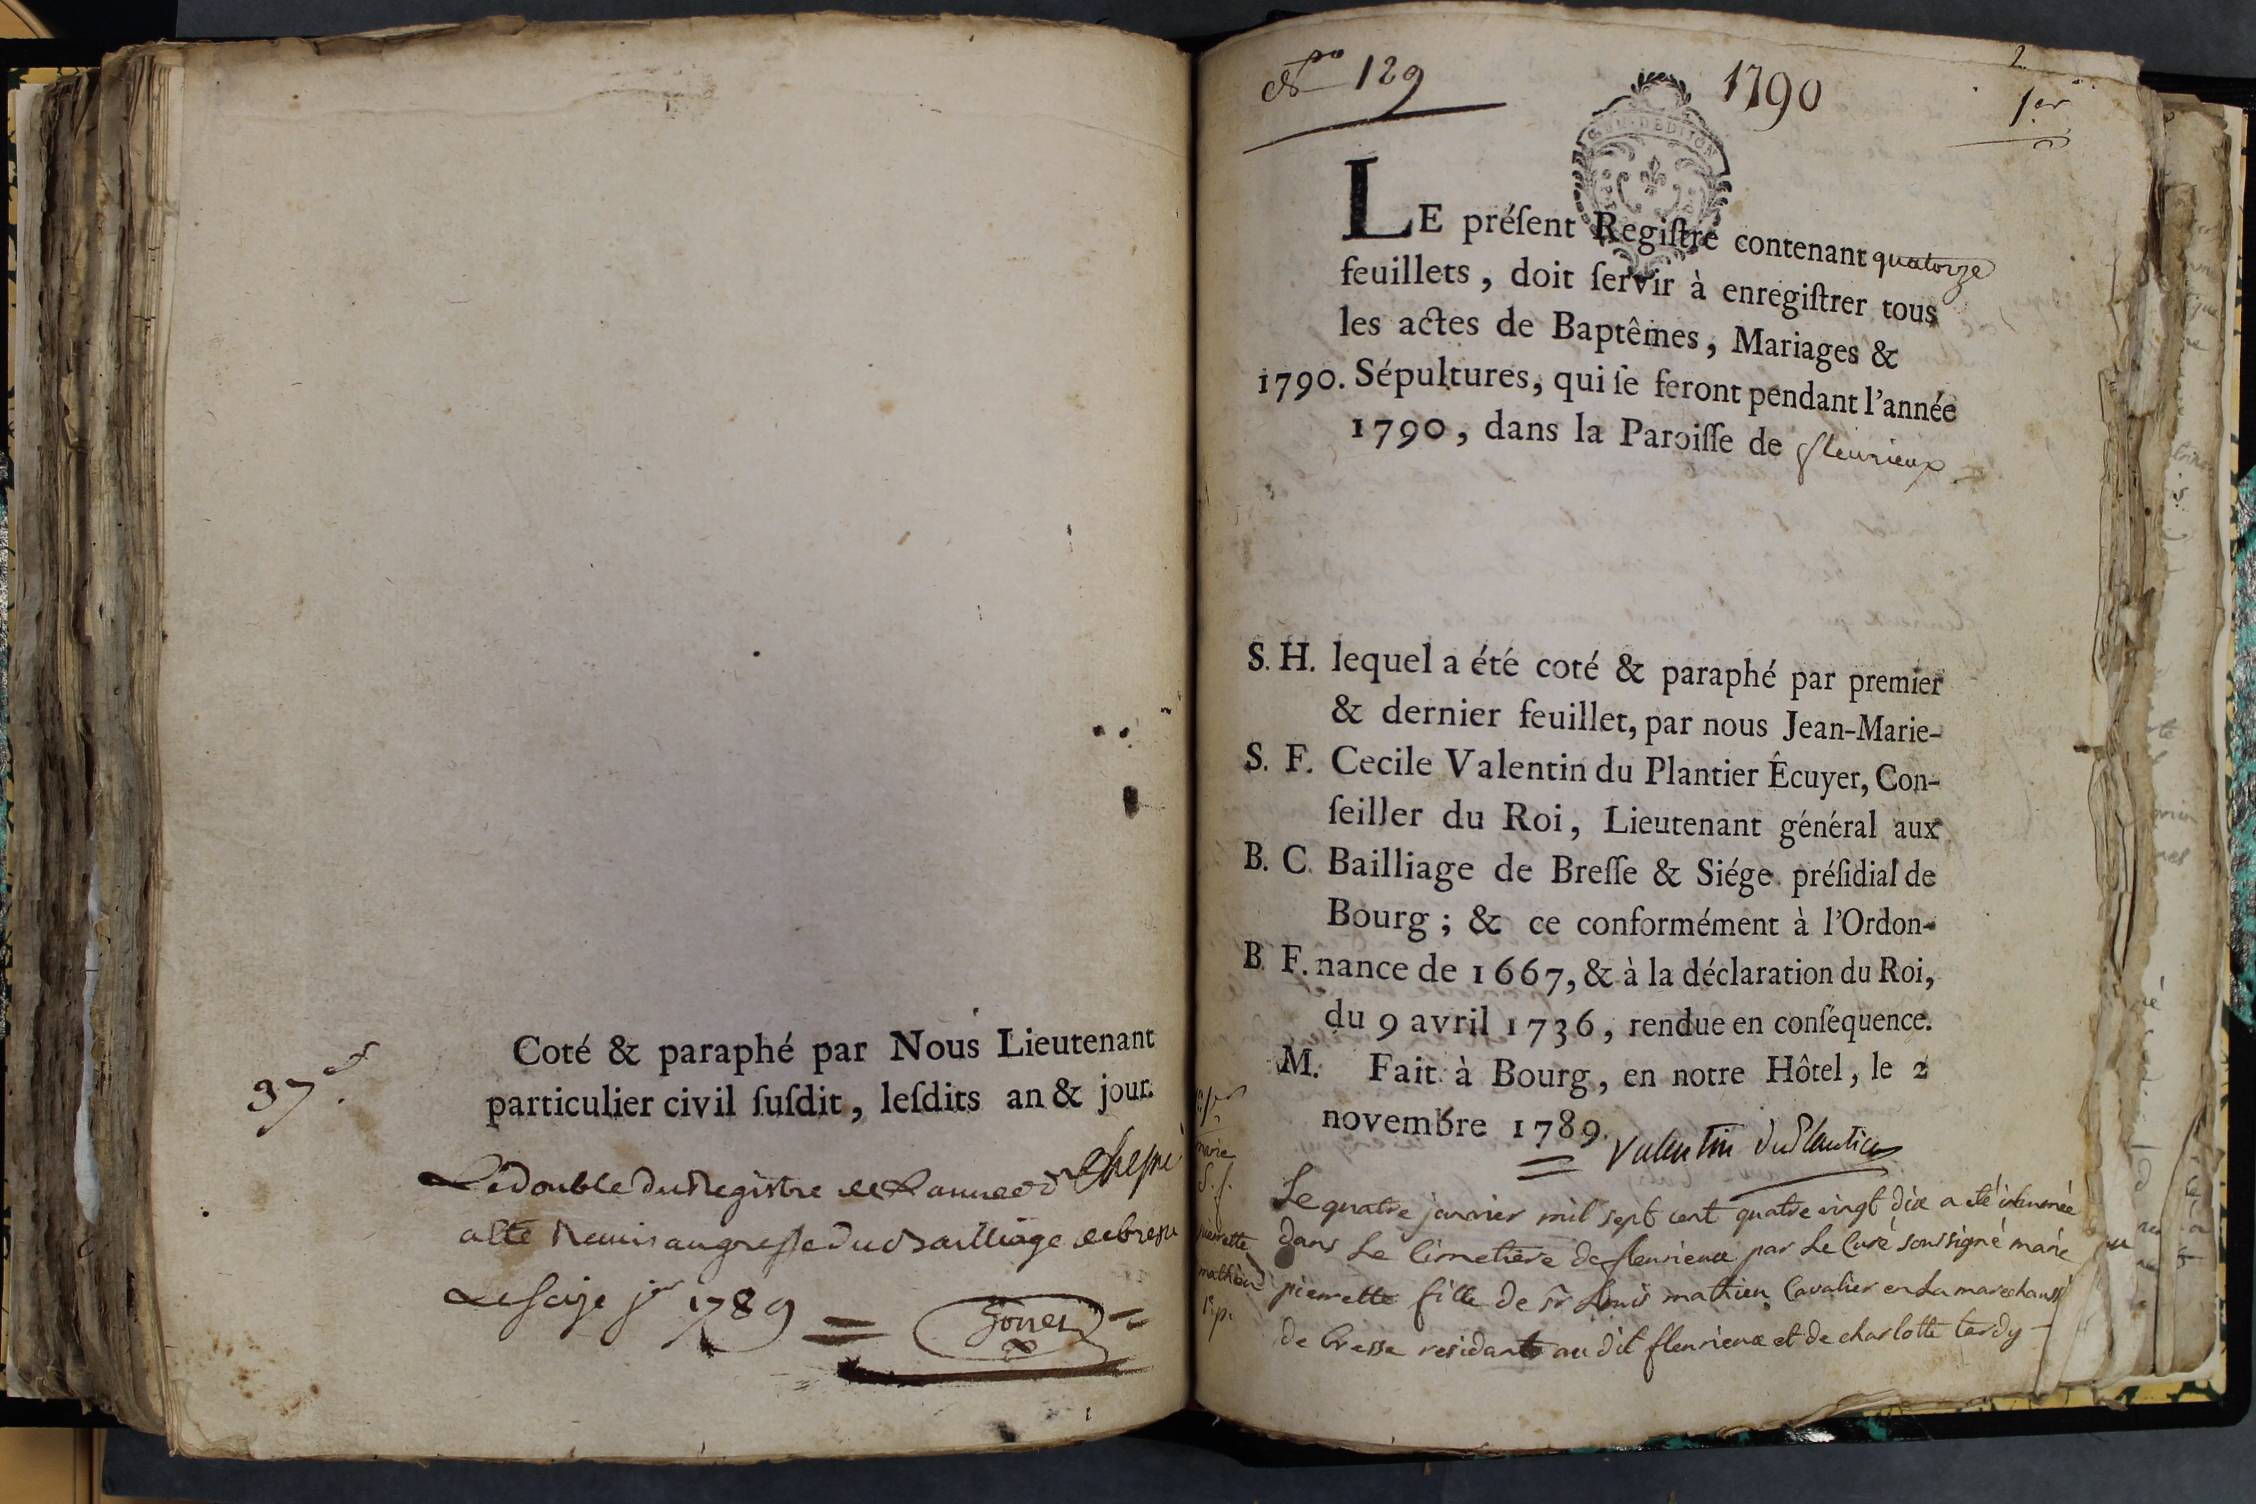 Coté & paraphé par Nous Lieutenant
particulier civil ſuſdit, leſdits an & jour.
37
Le double du Registre de L'année
a été Remis au greffe du Bailliage de bresse
Le seize jer 1789
No 129
1790
2
1er
GEN. DE DIJON
LE préſent Regiſtre contenant quatorze
feuillets, doit ſervir à enregiſtrer tous
les actes de Baptêmes, Mariages &
1790. Sépultures, qui ſe feront pendant l'année
1790, dans la Paroiſſe de fleurieux
S. H. lequel a été coté & paraphé par premier
& dernier feuillet, par nous Jean-Marie-
S. F. Cecile Valentin du Plantier Êcuyer, Con-
ſeiller du Roi, Lieutenant général aux
B. C. Bailliage de Breſſe & Siége préſidial de
Bourg ; & ce conformément à l'Ordon-
B. F. nance de 1667, & à la déclaration du Roi,
du 9 avril 1736, rendue en conſequence.
M. Fait à Bourg, en notre Hôtel, le 2
novembre 1789.
Valentin duPlantier
marie
S. f.
pierrette
mathieu
Le quatre janvier mil sept cent quatre vingt dix a eté inhumée
dans Le Cimetière de fleurieux par Le Curé soussigné marie
pierrette fille de Sr Louis mathieu Cavalier en La marechaussé
de bresse residant au dit fleurieux et de charlotte tardy -